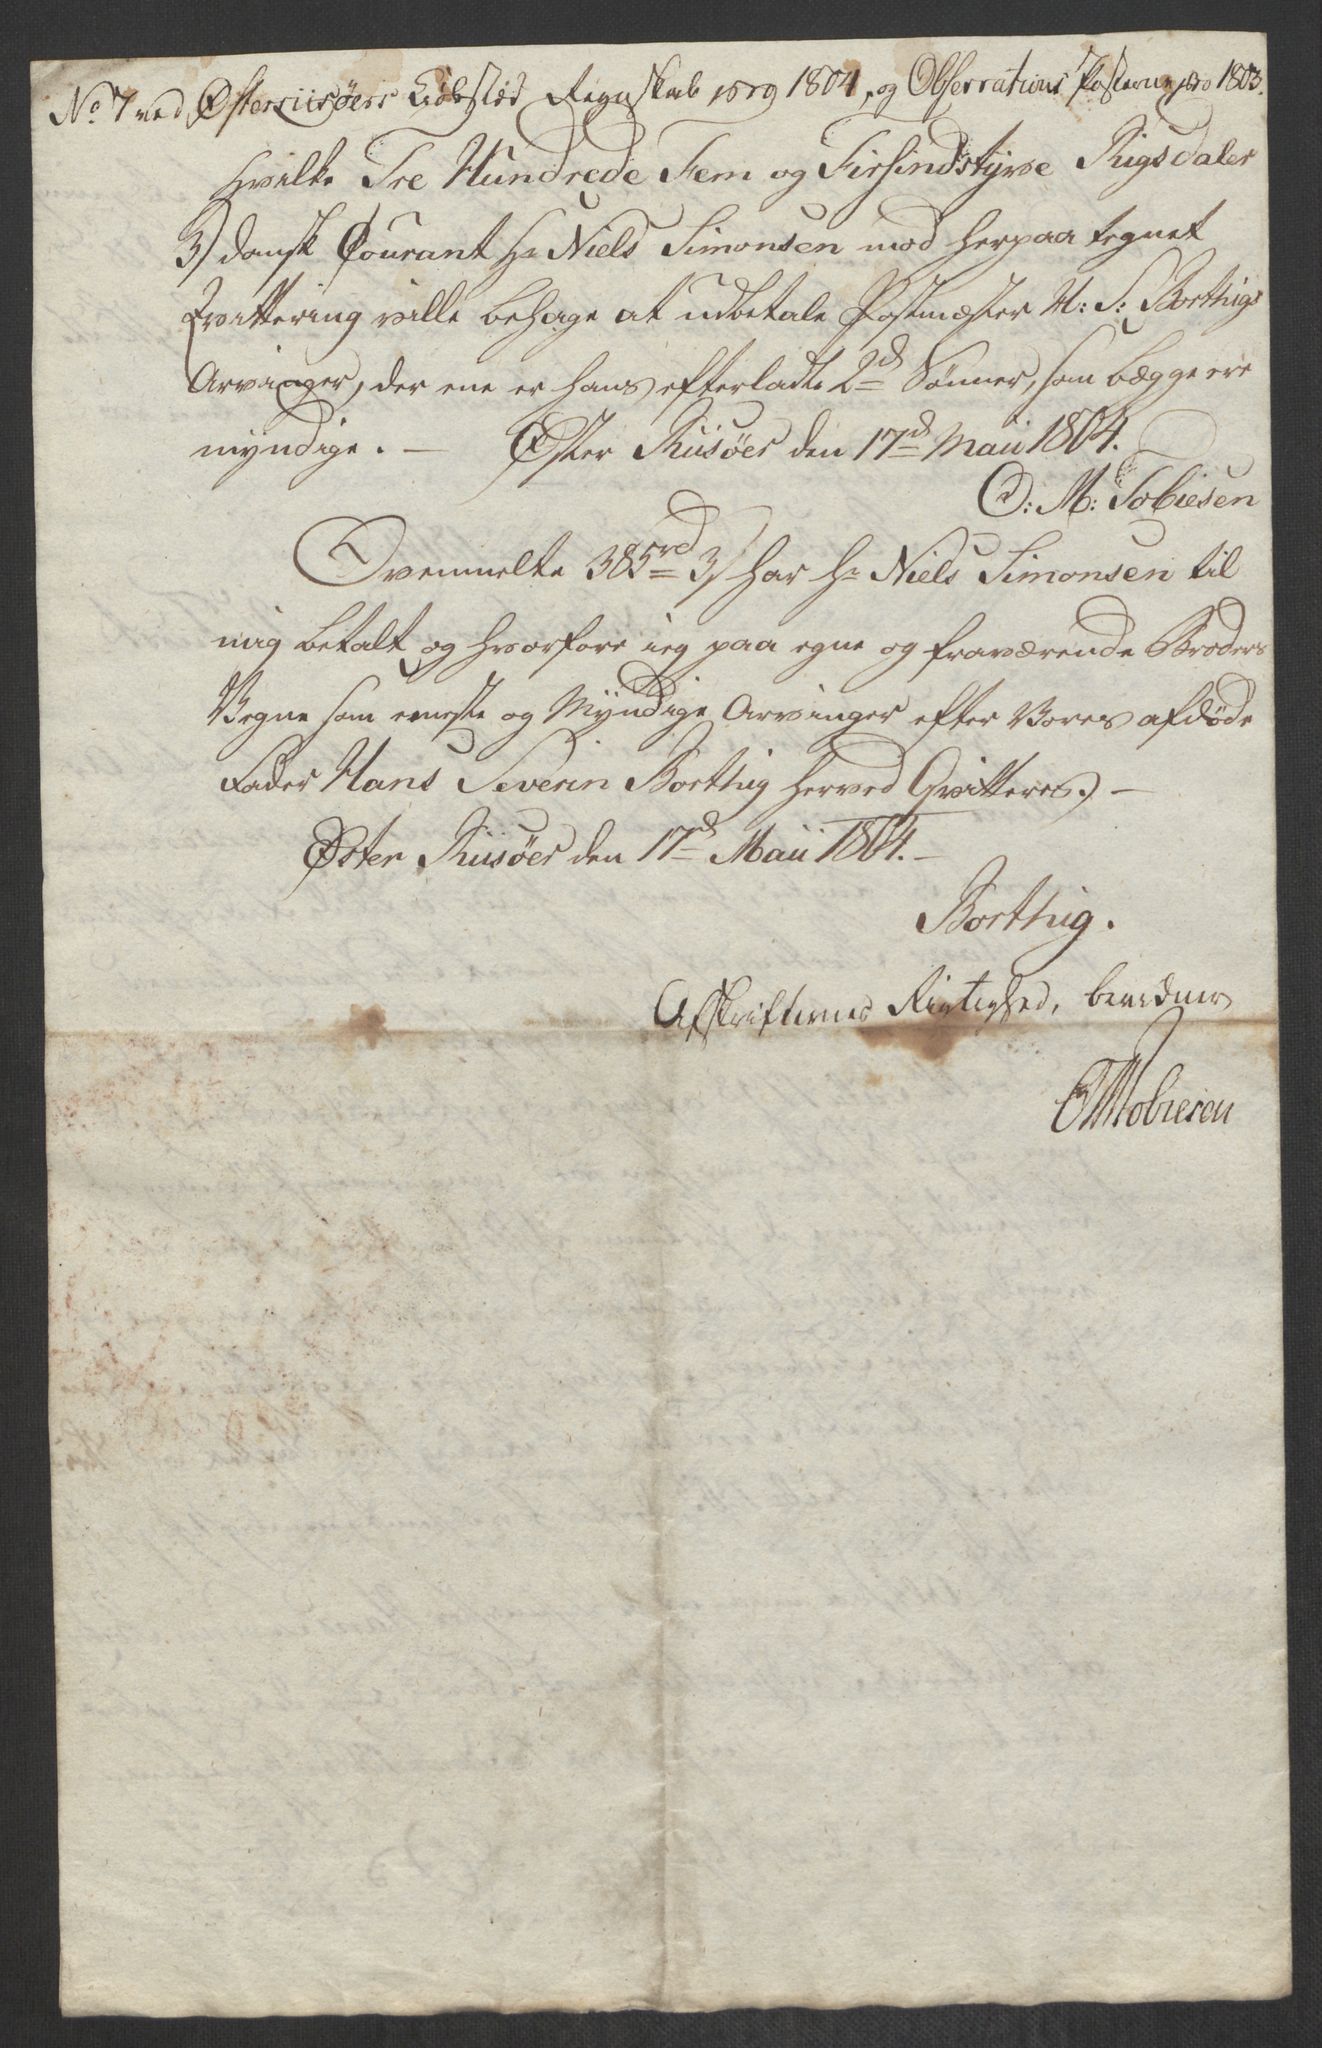 No 7 ved Østerriisöers Kiöbstæd Regnskab pro 1804, og Observations Posterne pro 1803.
Hvilke Tre Hundrede Fem og Firsindstyve Rigsdaler
3 s dansk Courant Hr Niels Simonsen mod herpaa tegnet
Qvittering ville behage at udbetale Postmester H: S: Borthigs
Arvinger, der ene er hans efterladte 2de Sønner, som bægge ere
myndige. — Øster Riisöer den 17de Maii 1804.
O: M: Tobiesen
Ovenmelte 385rd 3 s har Hr Niels Simonsen til
mig betalt og hvorfore ieg paa egne og fraværende Broders
Vegne som eneste og Myndige Arvinger efter Vores afdøde
Fader Hans Severin Borthig herved Qvitteres. —
Øster Riisöer den 17de Maii 1804. —
Borthig.
Afskrifternes Rigtighed, bevidner
OMTobiesen